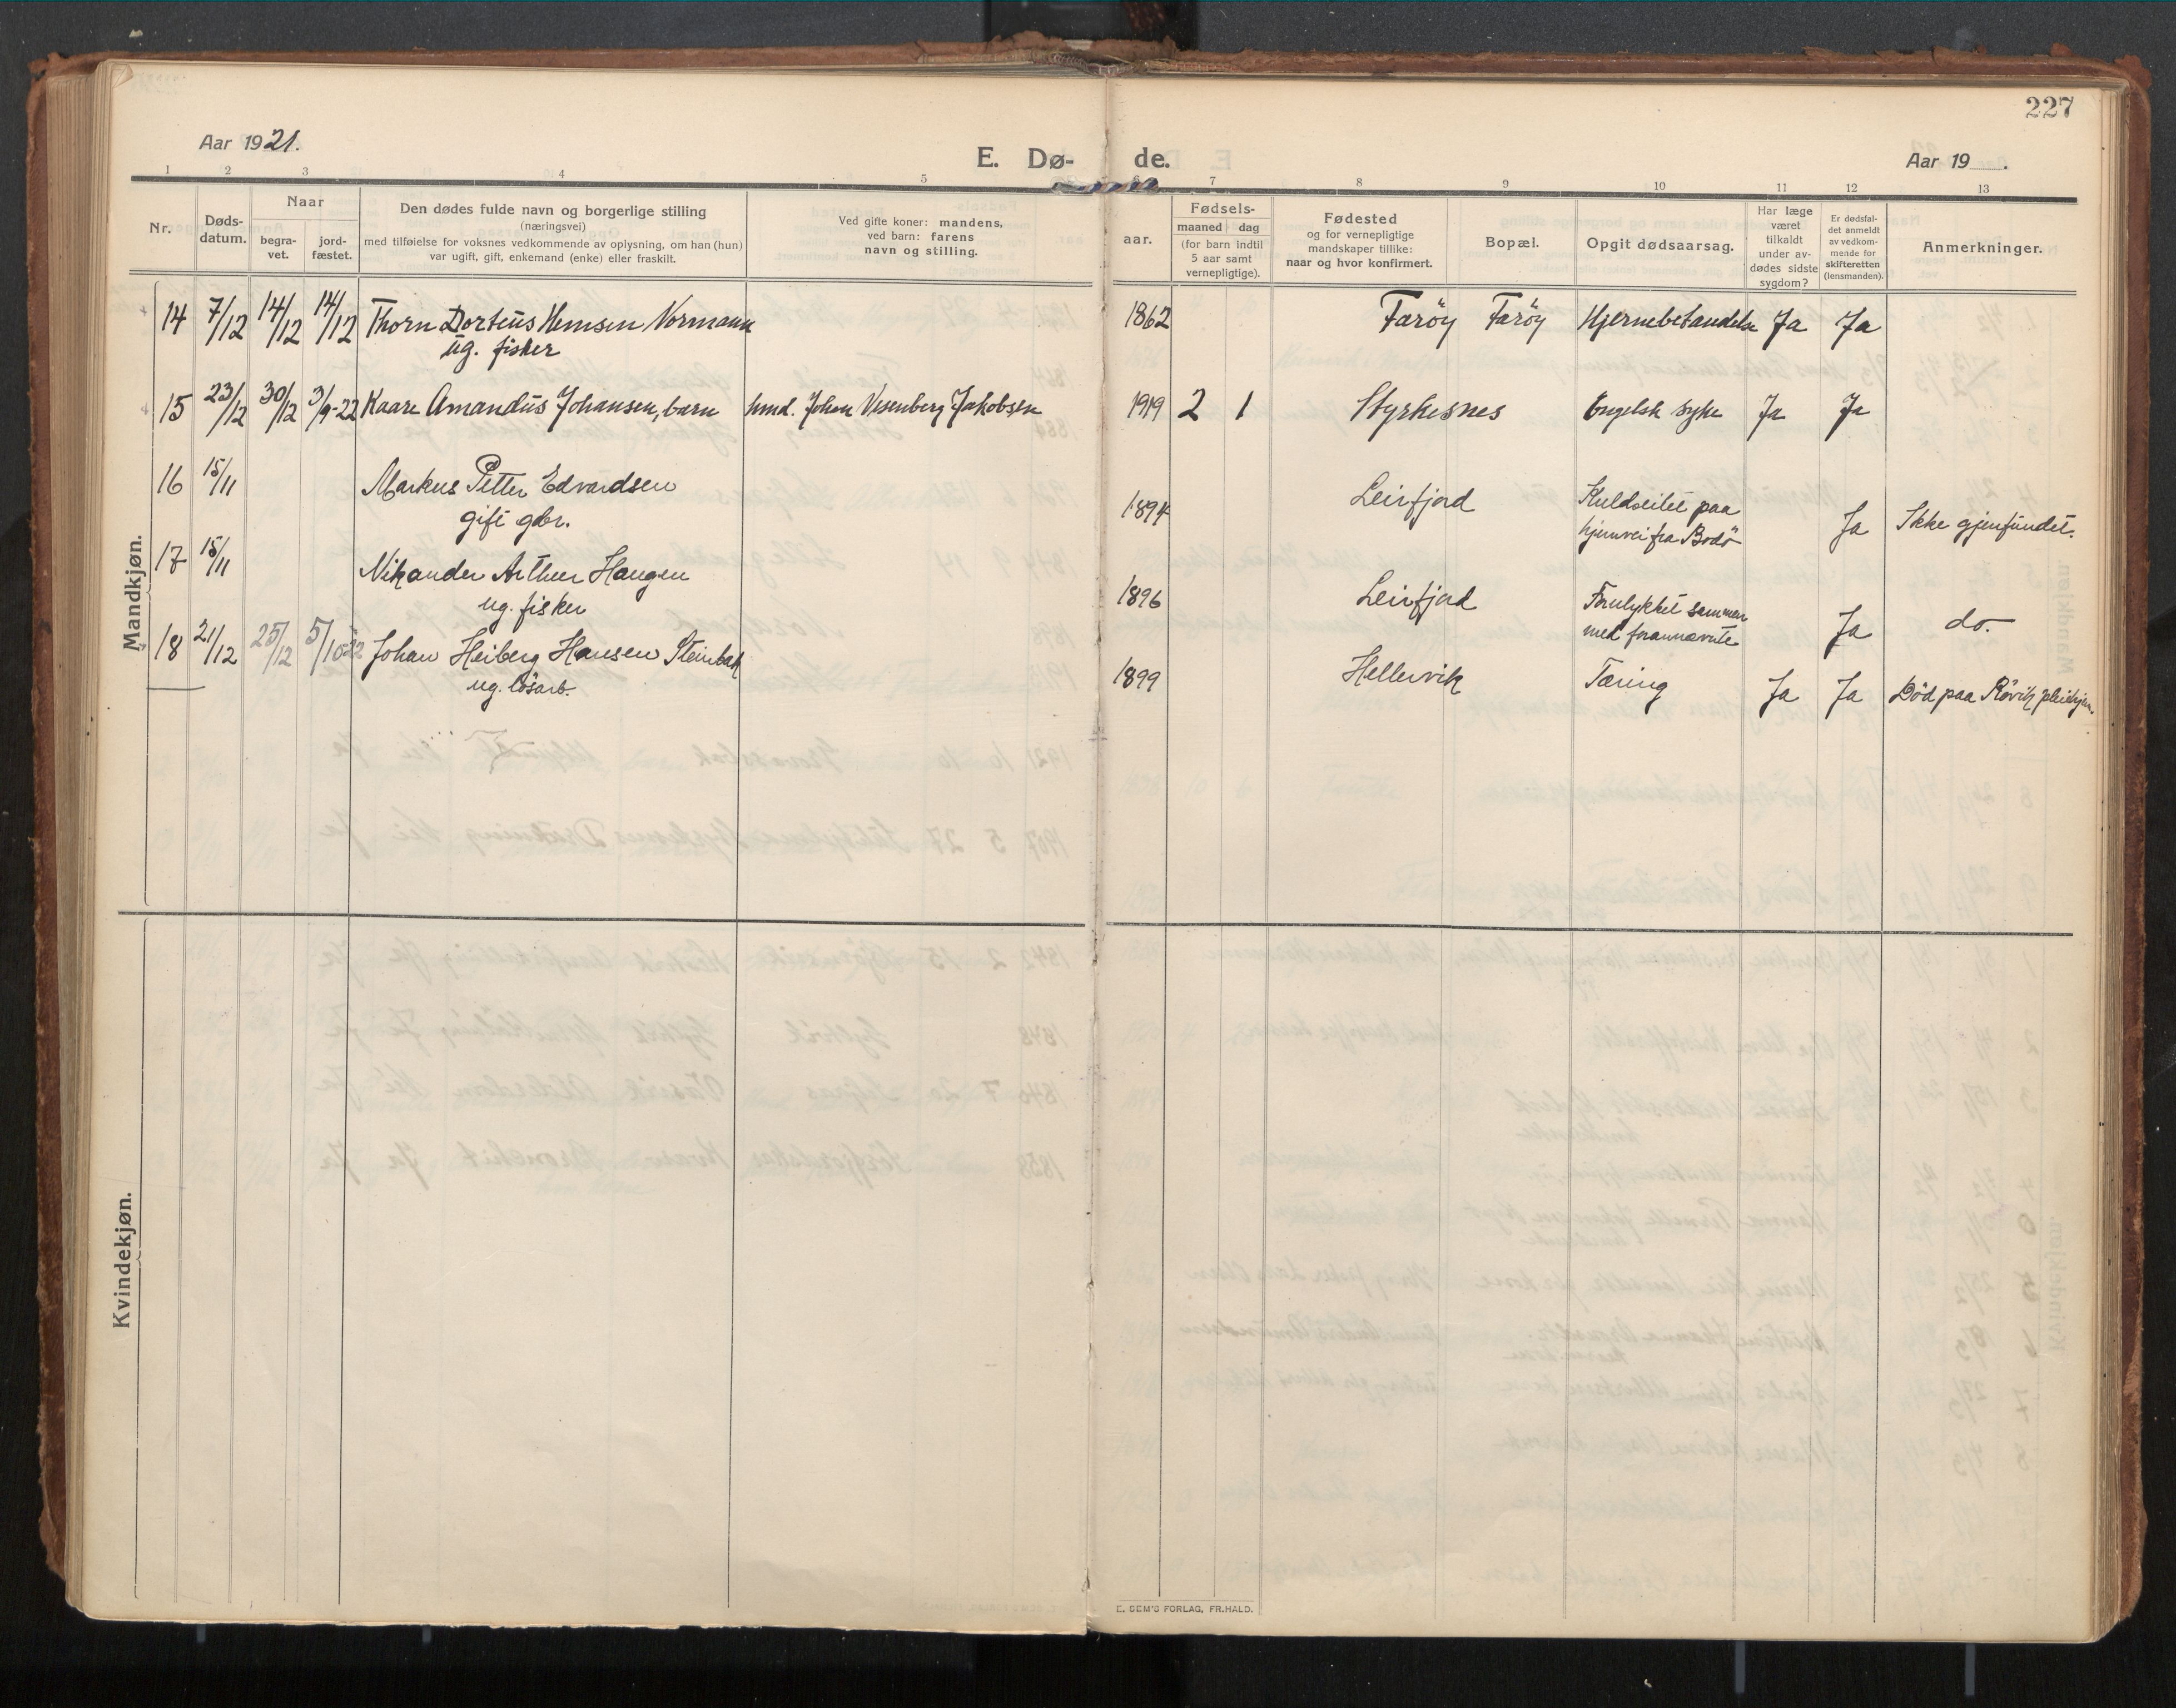 227
Aar 1921.
E. Dø-
de.
Aar 19 .
1 2 3 4 5 6 7 8 9 10 11 12 13
Nr.
Døds-
datum.
Naar
begra-
vet.
jord-
fæstet.
Den dødes fulde navn og borgerlige stilling
(næringsvei)
med tilføielse for voksnes vedkommende av oplysning, om han (hun)
var ugift, gift, enkemand (enke) eller fraskilt.
Ved gifte koner: mandens,
ved barn: farens
navn og stilling.
aar.
Fødsels-
maaned dag
(for barn indtil
5 aar samt
vernepligtige).
Fødested
og for vernepligtige
mandskaper tillike:
naar og hvor konfirmert.
Bopæl.
Opgit dødsaarsag.
Har læge
været
tilkaldt
under av-
dødes sidste
sygdom?
Er dødsfal-
det anmeldt
av vedkom-
mende for
skifteretten
(lensmanden).
Anmerkninger.
Mandkjøn.
14 7/12 14/12 14/12 Thorn Dorteus Hemsen Normann 1862 Farøy Farøy Hjernebetændelse Ja Ja
ug. fisker
15 23/12 30/12 3/9-22 Kaare Amandus Johansen, barn Johan Vesenberg Jakobsen 1919 2 1 Styrkesnes Engelsk syke Ja Ja
16 15/11 Markus Petter Edvardsen 1894 Leirfjord Kuldseilet paa
gift gbr. hjemvei fra Bodø Ja Ikke gjenfundet.
17 15/11 Nikander Arthur Haugen 1896 Leirfjord Forulykket sammen
ug. fisker med forannævnte Ja do.
18 21/12 25/12 5/10-22 Johan Heiberg Hansen Steinbak 1899 Hellervik Tæring Ja Ja Død paa Røvik pleiehjem.
ug. løsarb.
Kvindekjøn.
E. SEM'S FORLAG, FR.HALD.